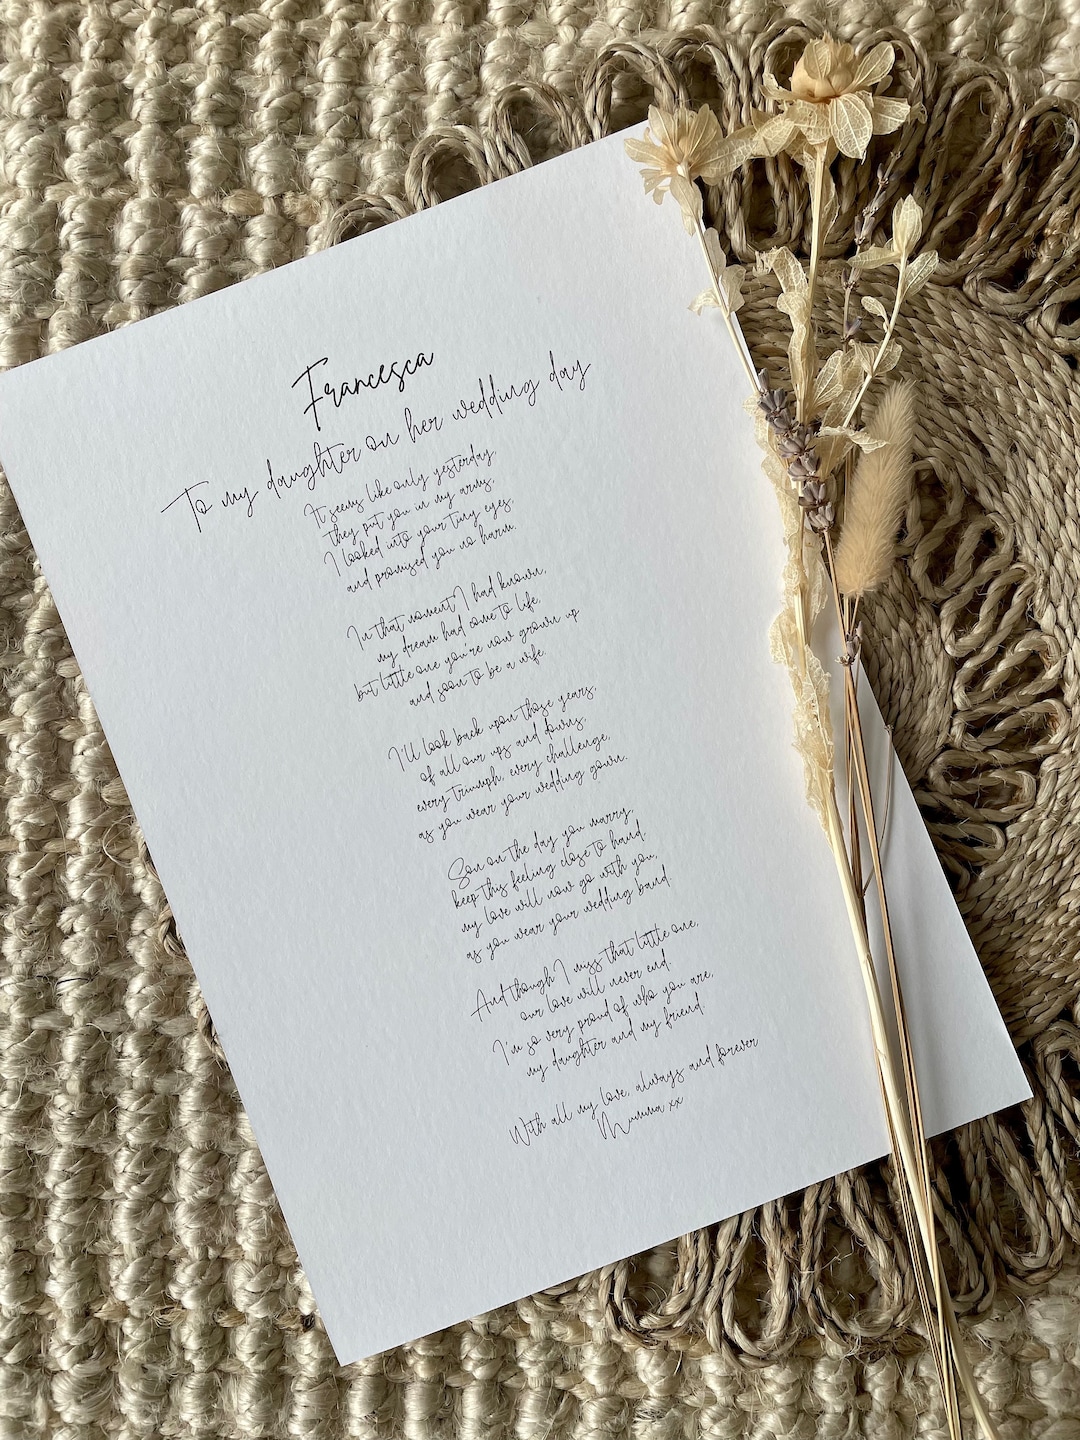 Francesca
To my daughter on her wedding day
It seems like only yesterday
they put you in my arms,
I looked into your tiny eyes,
and promised you no harm.
In that moment I had known,
my dream had come to life,
but little one you're now grown up
and soon to be a wife.
I'll look back upon those years,
of all our ups and downs,
every triumph, every challenge,
as you wear your wedding gown.
So on the day you marry,
keep this feeling close to hand.
my love will now go with you,
as you wear your wedding band
And though I miss that little one,
our love will never end.
I'm so very proud of who you are,
my daughter and my friend.
With all my love, always and forever
Mumma xx